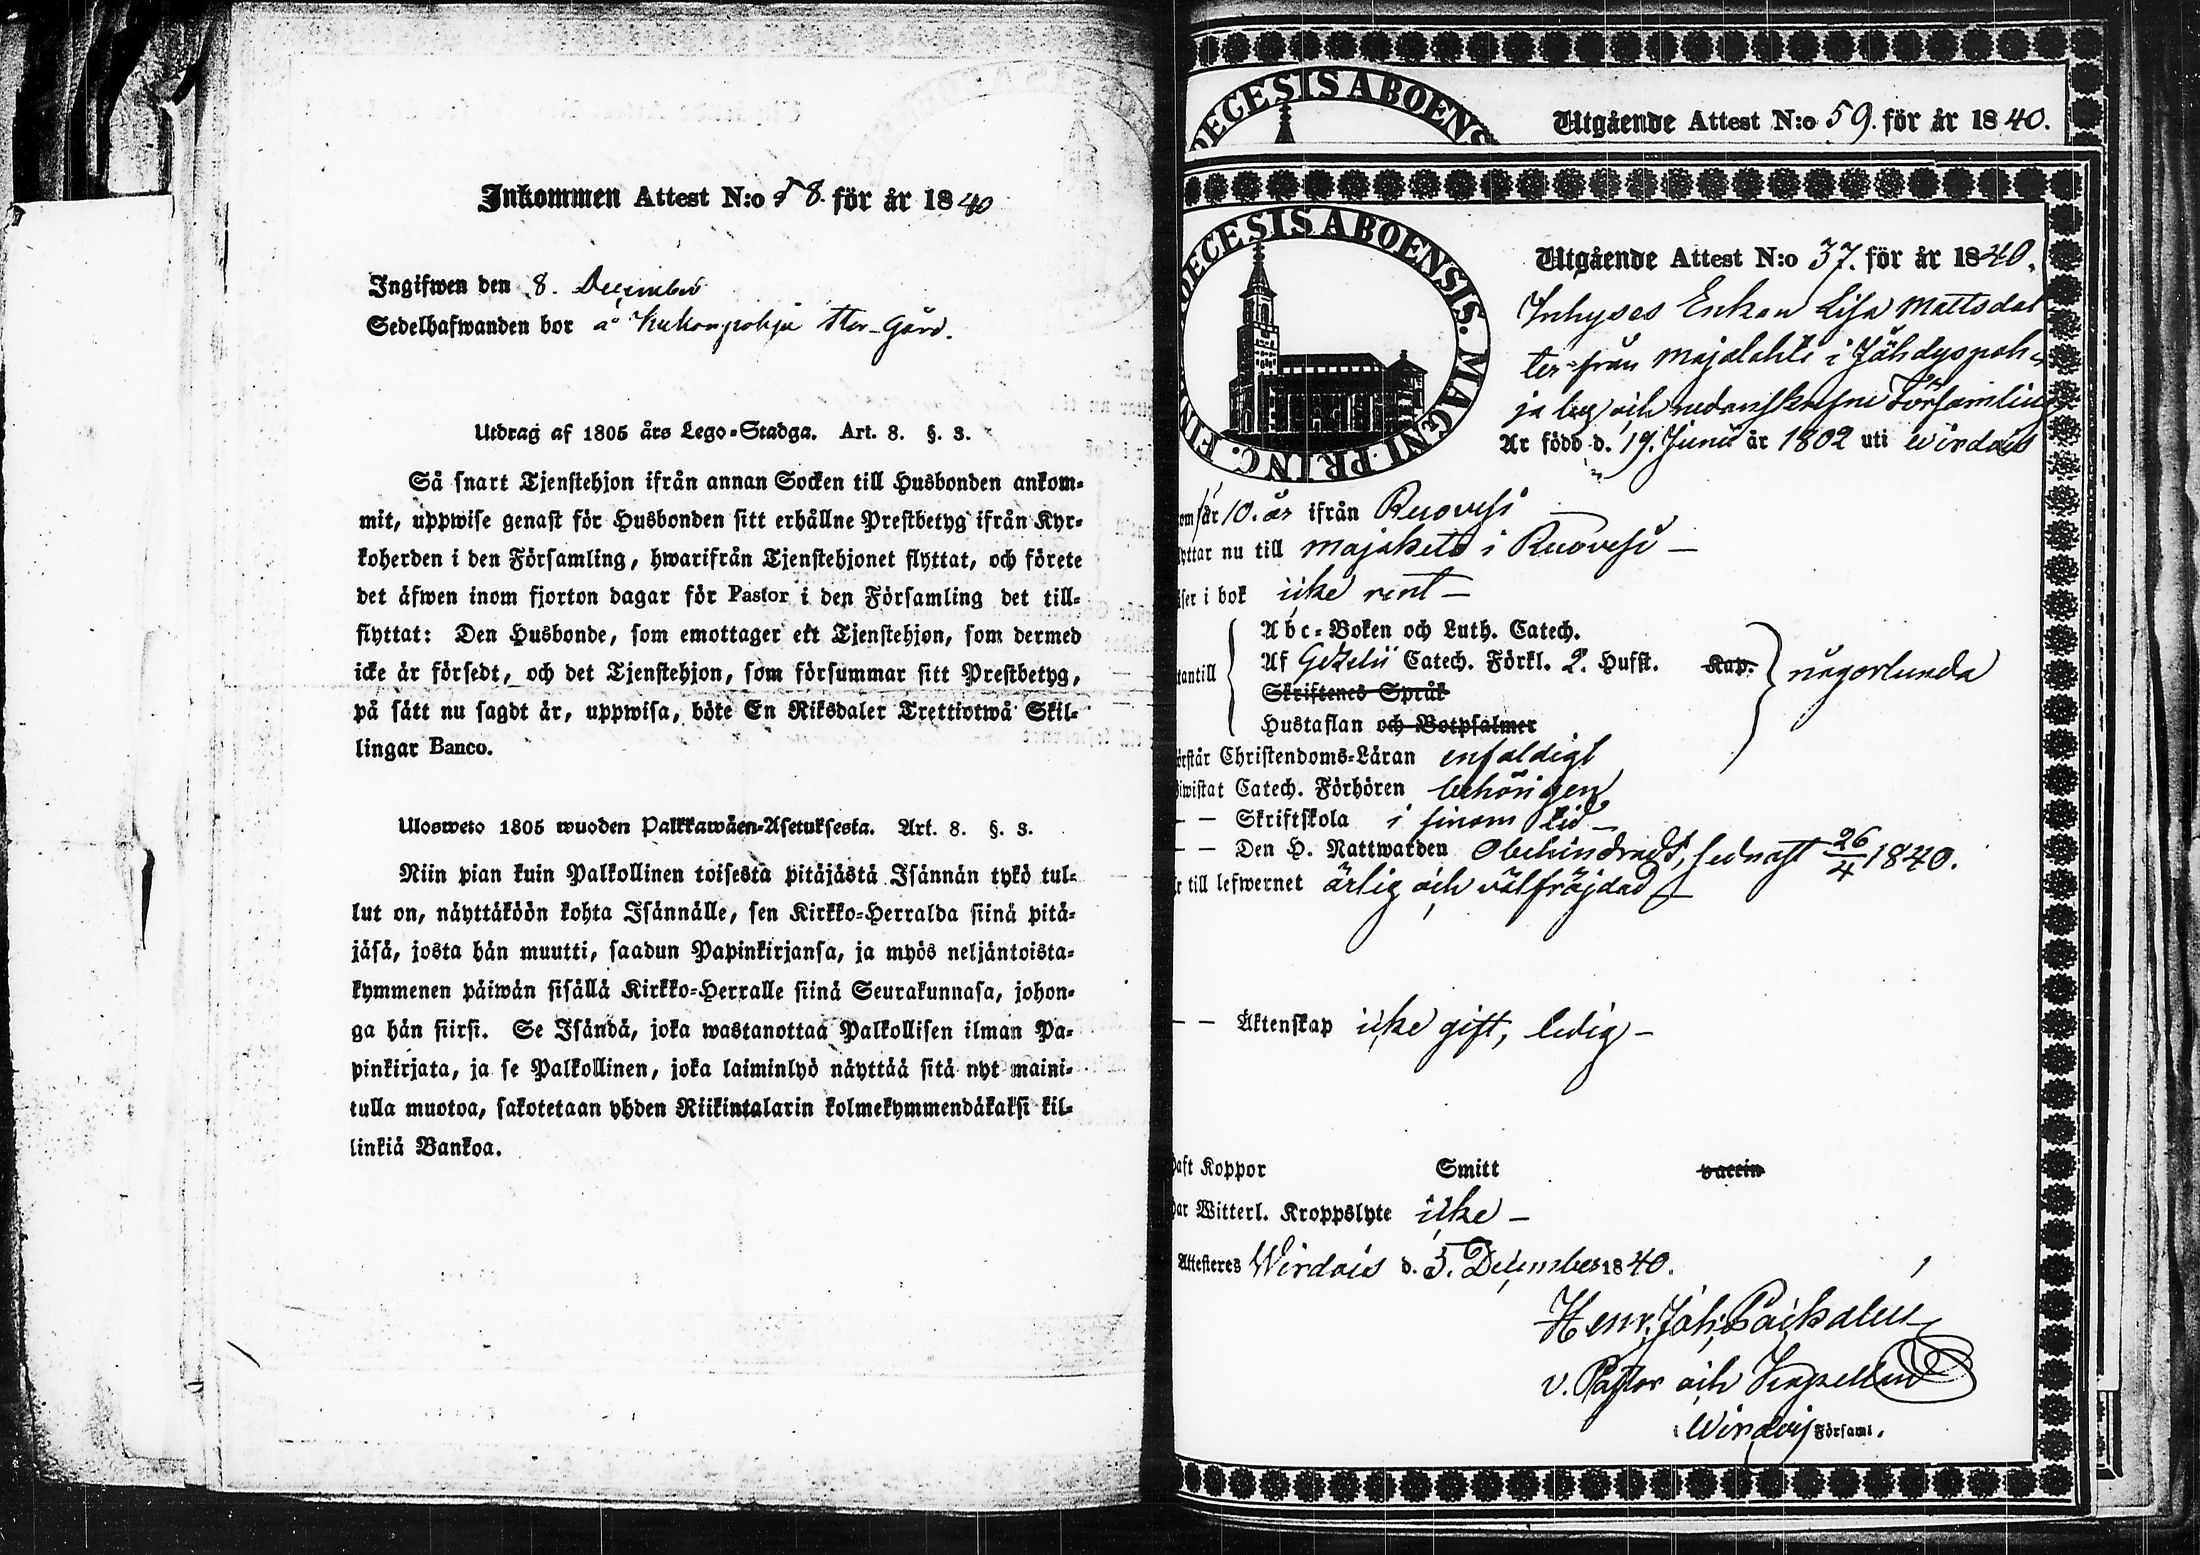 Inkommen Attest N:o 58. för år 1840
Ingifwen den 8. December
Sedelhafwanden bor å Kukonpohja Stor-Gård.
Utdrag af 1805 års Lego-Stadga. Art. 8. §. 3.
Så snart Tjenstehjon ifrån annan Socken till Husbonden ankom-
mit, uppwise genast för Husbonden sitt erhållne Prestbetyg ifrån Kyr-
koherden i den Församling, hwarifrån Tjenstehjonet flyttat, och förete
det äfwen inom fjorton dagar för Pastor i den Församling det till-
flyttat: Den Husbonde, som emottager ett Tjenstehjon, som dermed
icke är försedt, och det Tjenstehjon, som försummar sitt Prestbetyg,
på sätt nu sagdt är, uppwisa, böte En Riksdaler Trettiotwå Skil-
lingar Banco.
Ulosweto 1805 wuoden Palkkawäen-Asetuksesta. Art. 8. §. 3.
Niin pian kuin Palkollinen toisesta pitäjästä Isännän tykö tul-
lut on, näyttäköön kohta Isännälle, sen Kirkko-Herralda siinä pitä-
jäsä, josta hän muutti, saadun Papinkirjansa, ja myös neljäntoista-
kymmenen päiwän sisällä Kirkko-Herralle siinä Seurakunnasa, johon-
ga hän siirsi. Se Isändä, joka wastanottaa Palkollisen ilman Pa-
pinkirjata, ja se Palkollinen, joka laiminlyö näyttää sitä nyt maini-
tulla muotoa, sakotetaan yhden Riikintalarin kolmekymmendäkaksi kil-
linkiä Bankoa.
DECESIS ABOENS
Utgående Attest N:o 59. för år 1840.
DECESIS ABOENSIS. MAGNI PRINC. FIN
Utgående Attest N:o 37. för år 1840.
Inhyses Enkan Lisa Mattsdot
ter från Majalahti i Jähdyspoh-
ja by och nedanskrefne Församling
Är född d. 19. Junii år 1802 uti Wirdois
om för 10. år ifrån Ruovesi
yttar nu till Majaketo i Ruovesi –
äser i bok icke rent –
Abc-Boken och Luth. Catech.
tantill Af Gezelii Catech. Förkl. 2. Hufst. Kap. någorlunda
Skriftenes Språk
Hustaflan och Botpsalmer
örstår Christendoms-Läran enfaldigt
iwistat Catech. Förhören behörigen
– – Skriftskola i sinom tid –
– – Den H. Nattwarden obehindradt, sednast 26/4 1840.
r till lefwernet ärlig och välfräjdad –
– – Äktenskap icke gift, ledig –
haft Koppor Smitt vaccin
har Witterl. Kroppslyte icke –
Attesteres Wirdois d. 5. December 1840.
Henr. Joh.
v. Pastor och Kapellan
i Wirdois Församl.